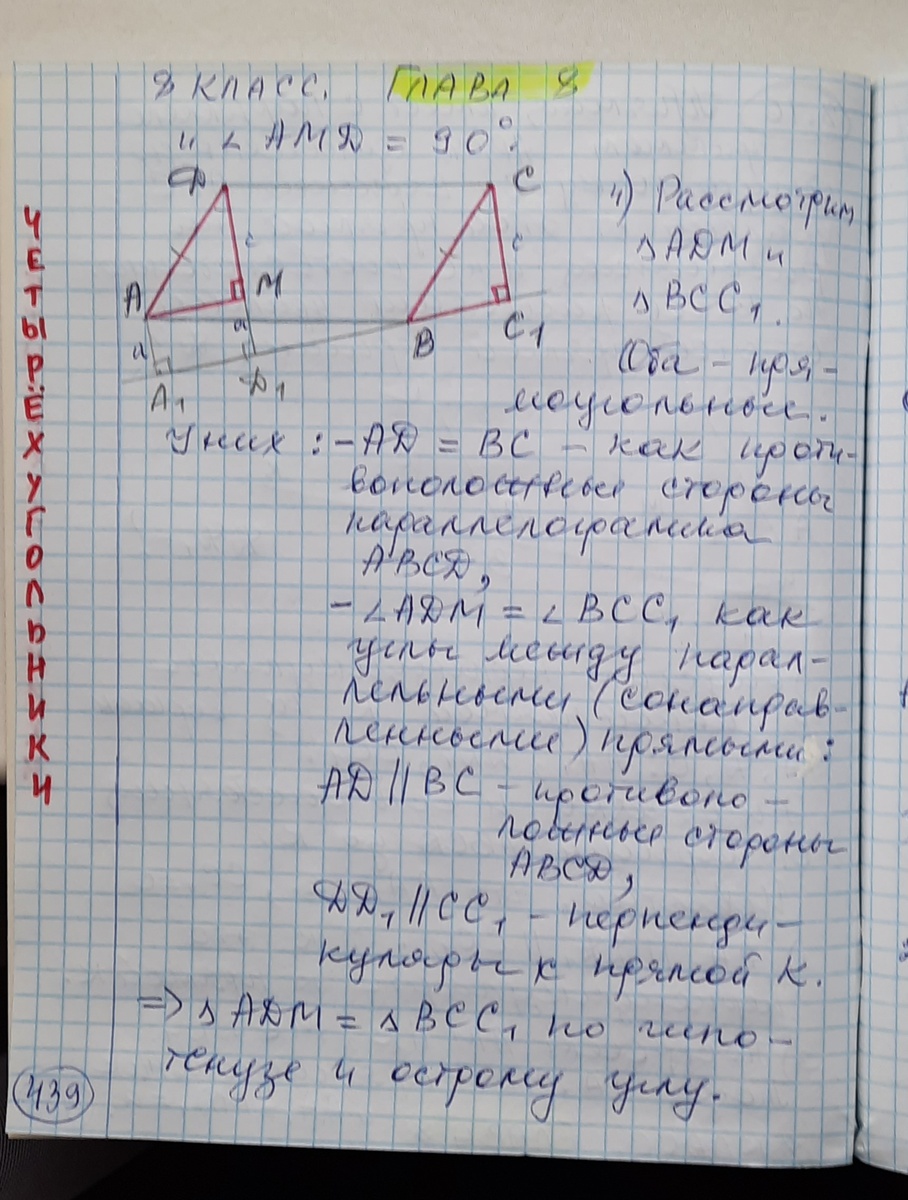 8 КЛАСС. ГЛАВА 8
и ∠ AMD = 90°.
D
C
A
M
B
C₁
A₁
D₁
a
a
c
c
4) Рассмотрим
△ ADM и
△ BCC₁.
Оба – пря-
моугольные.
У них: – AD = BC – как проти-
воположные стороны
параллелограмма
ABCD,
– ∠ADM = ∠BCC₁ как
углы между парал-
лельными (сонаправ-
ленными) прямыми:
AD || BC – противопо-
ложные стороны
ABCD,
DD₁ || CC₁ – перпенди-
куляры к прямой К.
=> △ ADM = △ BCC₁ по гипо-
тенузе и острому углу.
ЧЕТЫРЁХУГОЛЬНИКИ
439